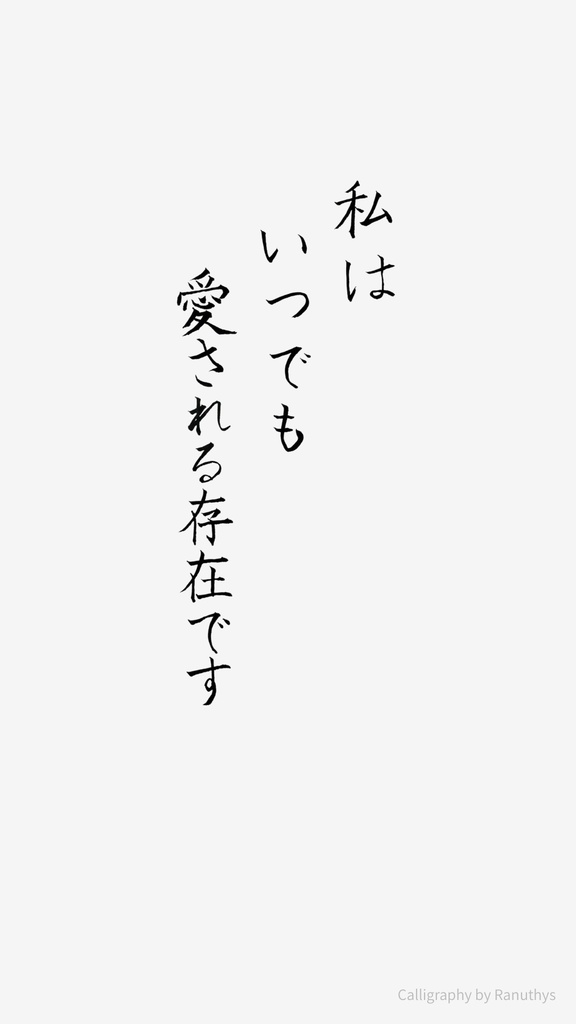 私は
いつでも
愛される存在です
Calligraphy by Ranuthys